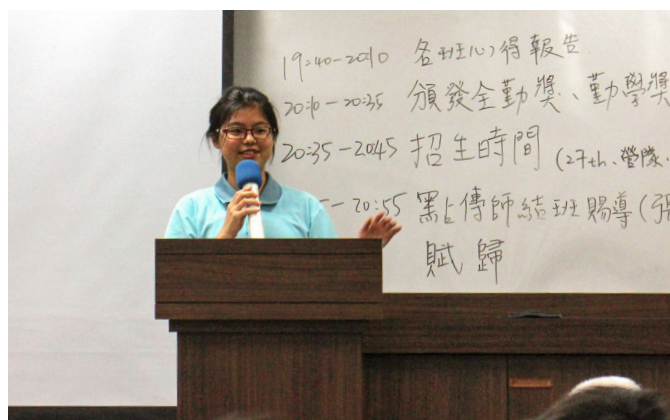 19:40-20:10 各班心得報告
20:10-20:35 頒發全勤獎、勤學獎
20:35-20:45 招生時間 (27th、營隊、
-20:55 點傳師結班賜導(
賦歸